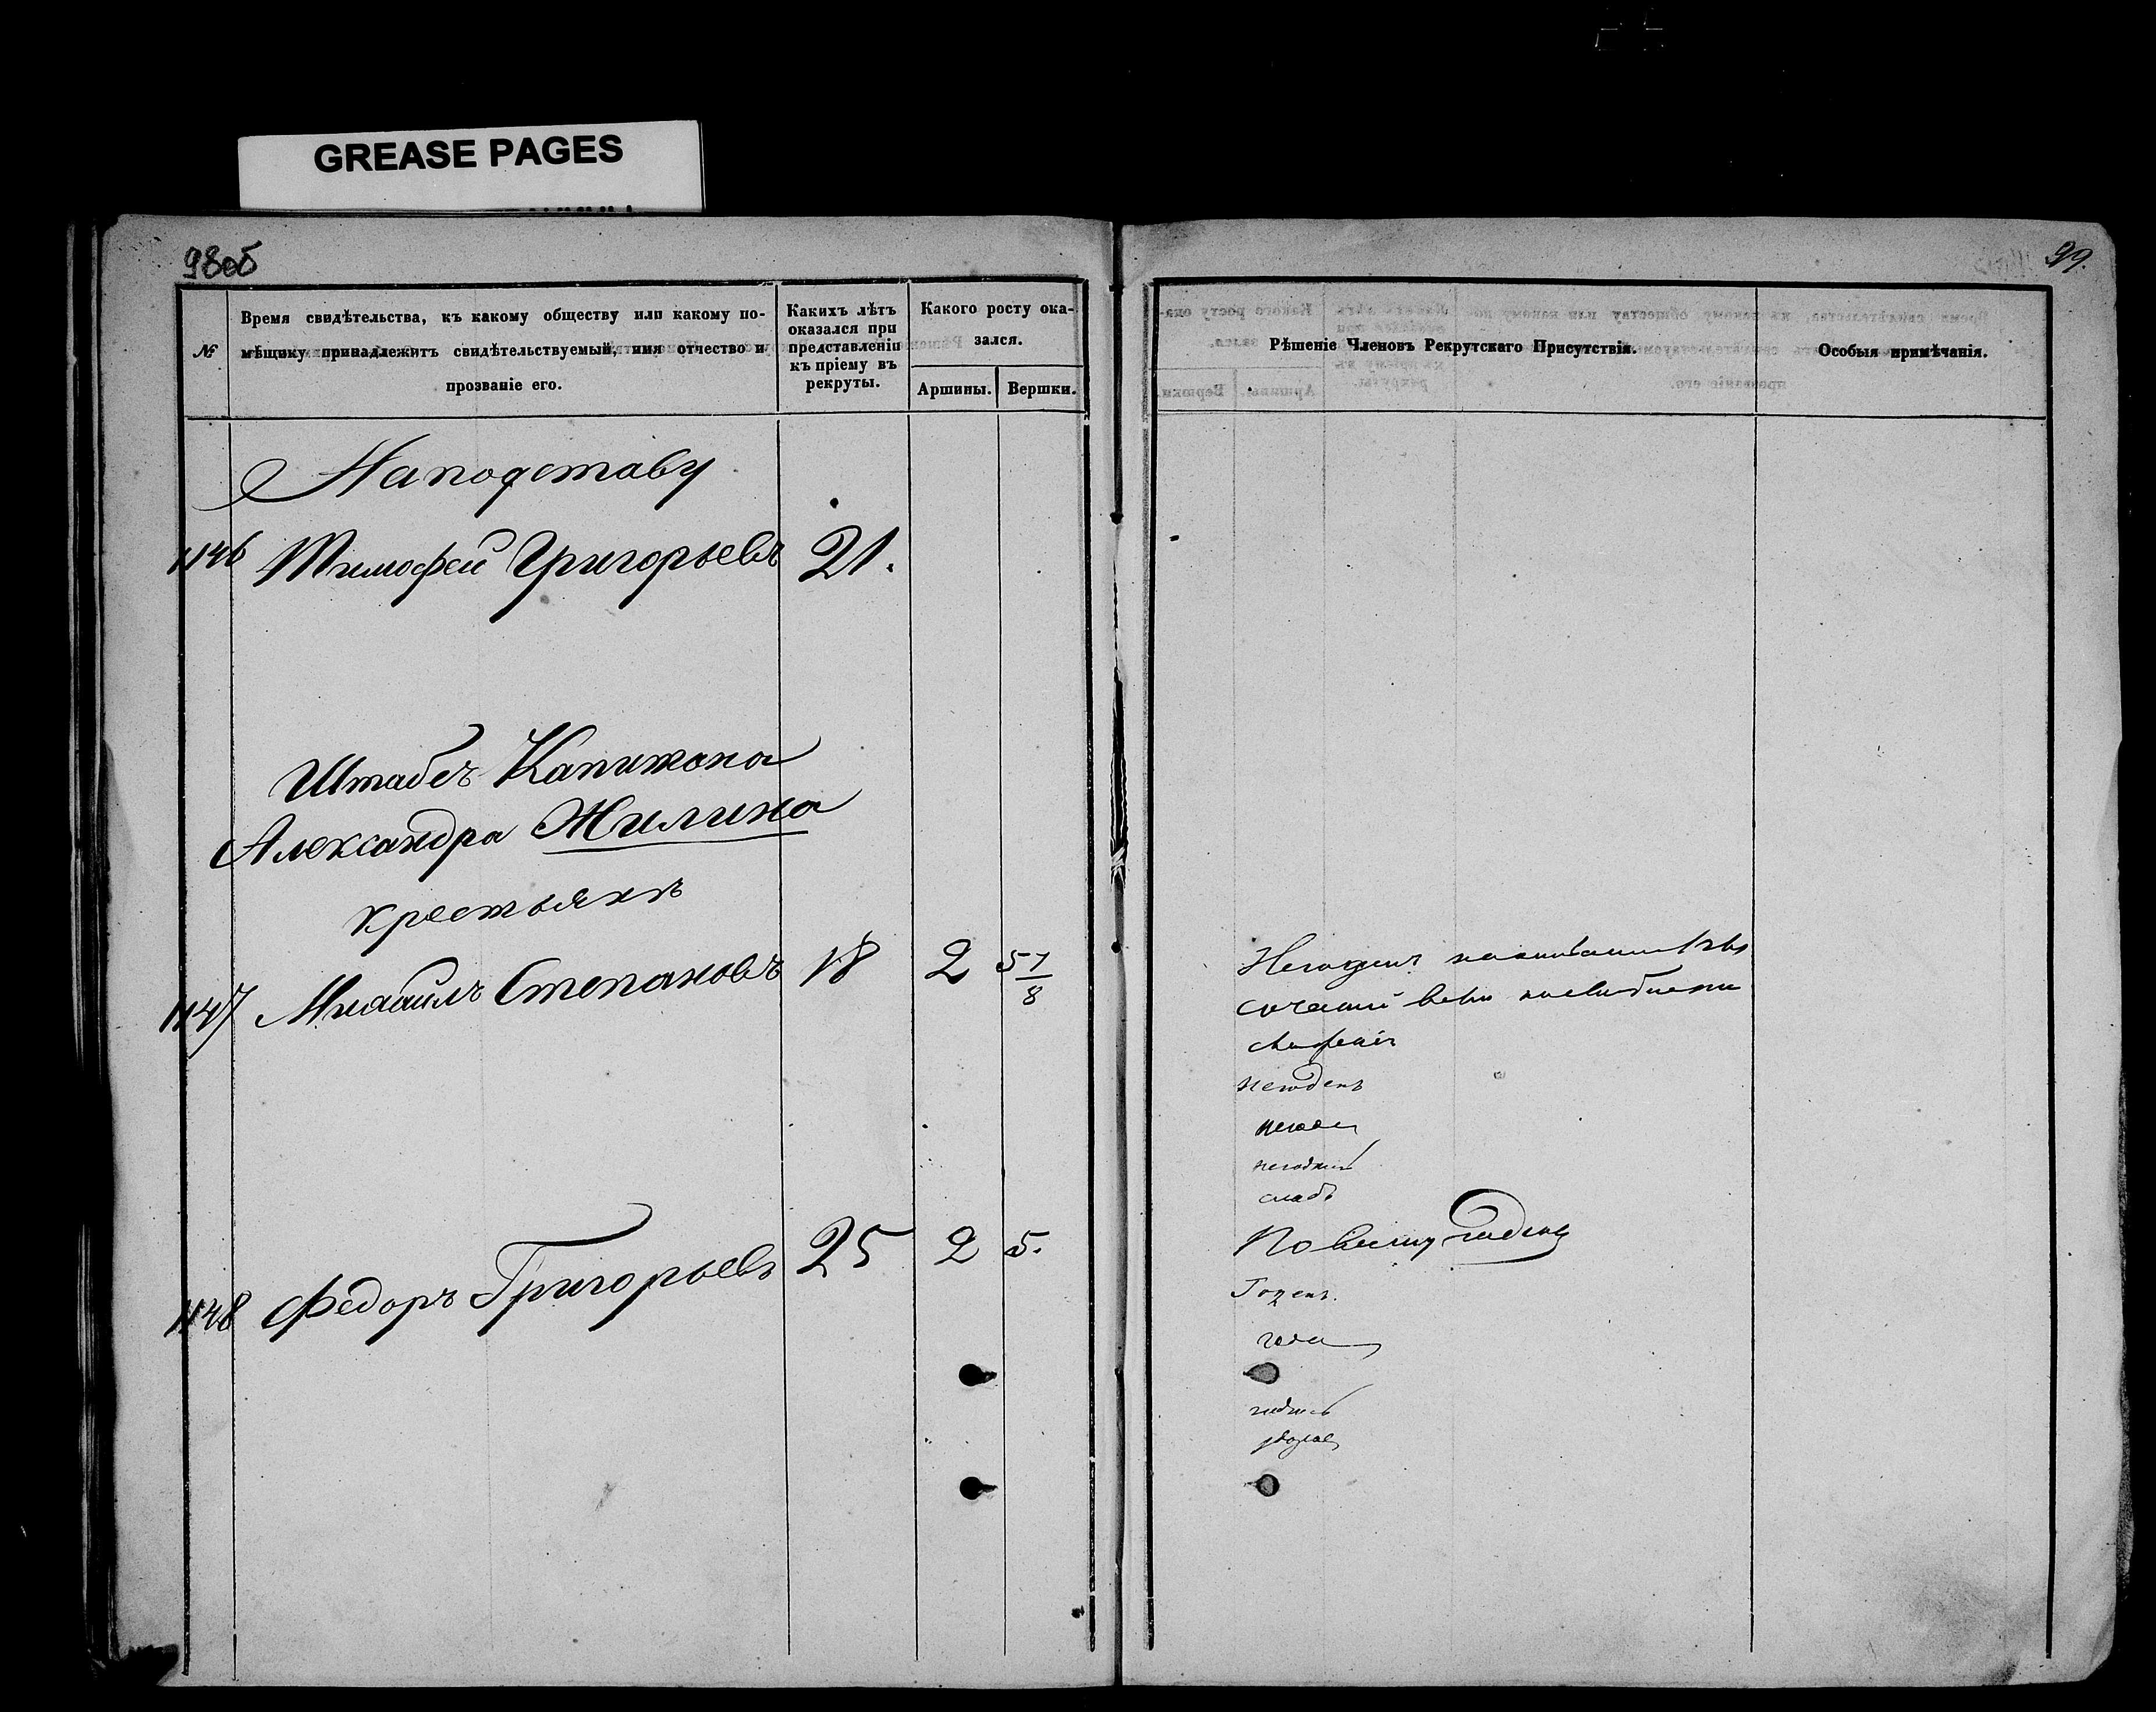 GREASE PAGES
98об
99.
№
Время свидѣтельства, къ какому обществу или какому по-
мѣщику принадлежитъ свидѣтельствуемый, имя отчество и
прозваніе его.
Какихъ лѣтъ
оказался при
представленіи
къ пріему въ
рекруты.
Какого росту ока-
зался.
Аршины.
Вершки.
Рѣшеніе Членовъ Рекрутскаго Присутствія.
Особыя примѣчанія.
На подставу
1146 Тимофей Григорьевъ 21.
Штабсъ Капитана
Александра Жилина
крестьянъ
1147 Михаилъ Степановъ 18 2 5 1/8
Негоденъ
негоденъ
негоден
негодный
слабъ
1148 Федоръ Григорьевъ 25 2 5.
По всему годенъ
Годенъ.
годен
годенъ